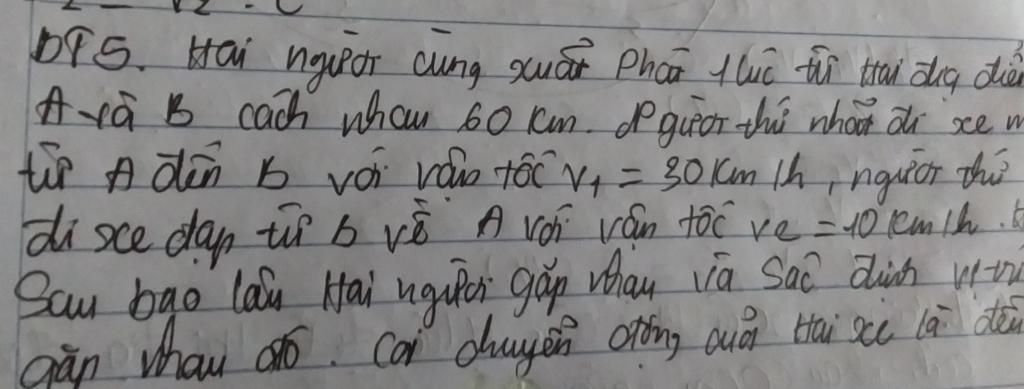 BT5. Hai người cùng xuất phát 1 lúc từ hai địa điểm
A và B cách nhau 60 km. Người thứ nhất đi xe m
từ A đến B với vận tốc v1 = 30 km/h, người thứ
đi xe đạp từ B về A với vận tốc v2 = 10 km/h.
Sau bao lâu hai người gặp nhau và sác định vị trí
gặp nhau đó. Coi chuyển động của hai xe là đều